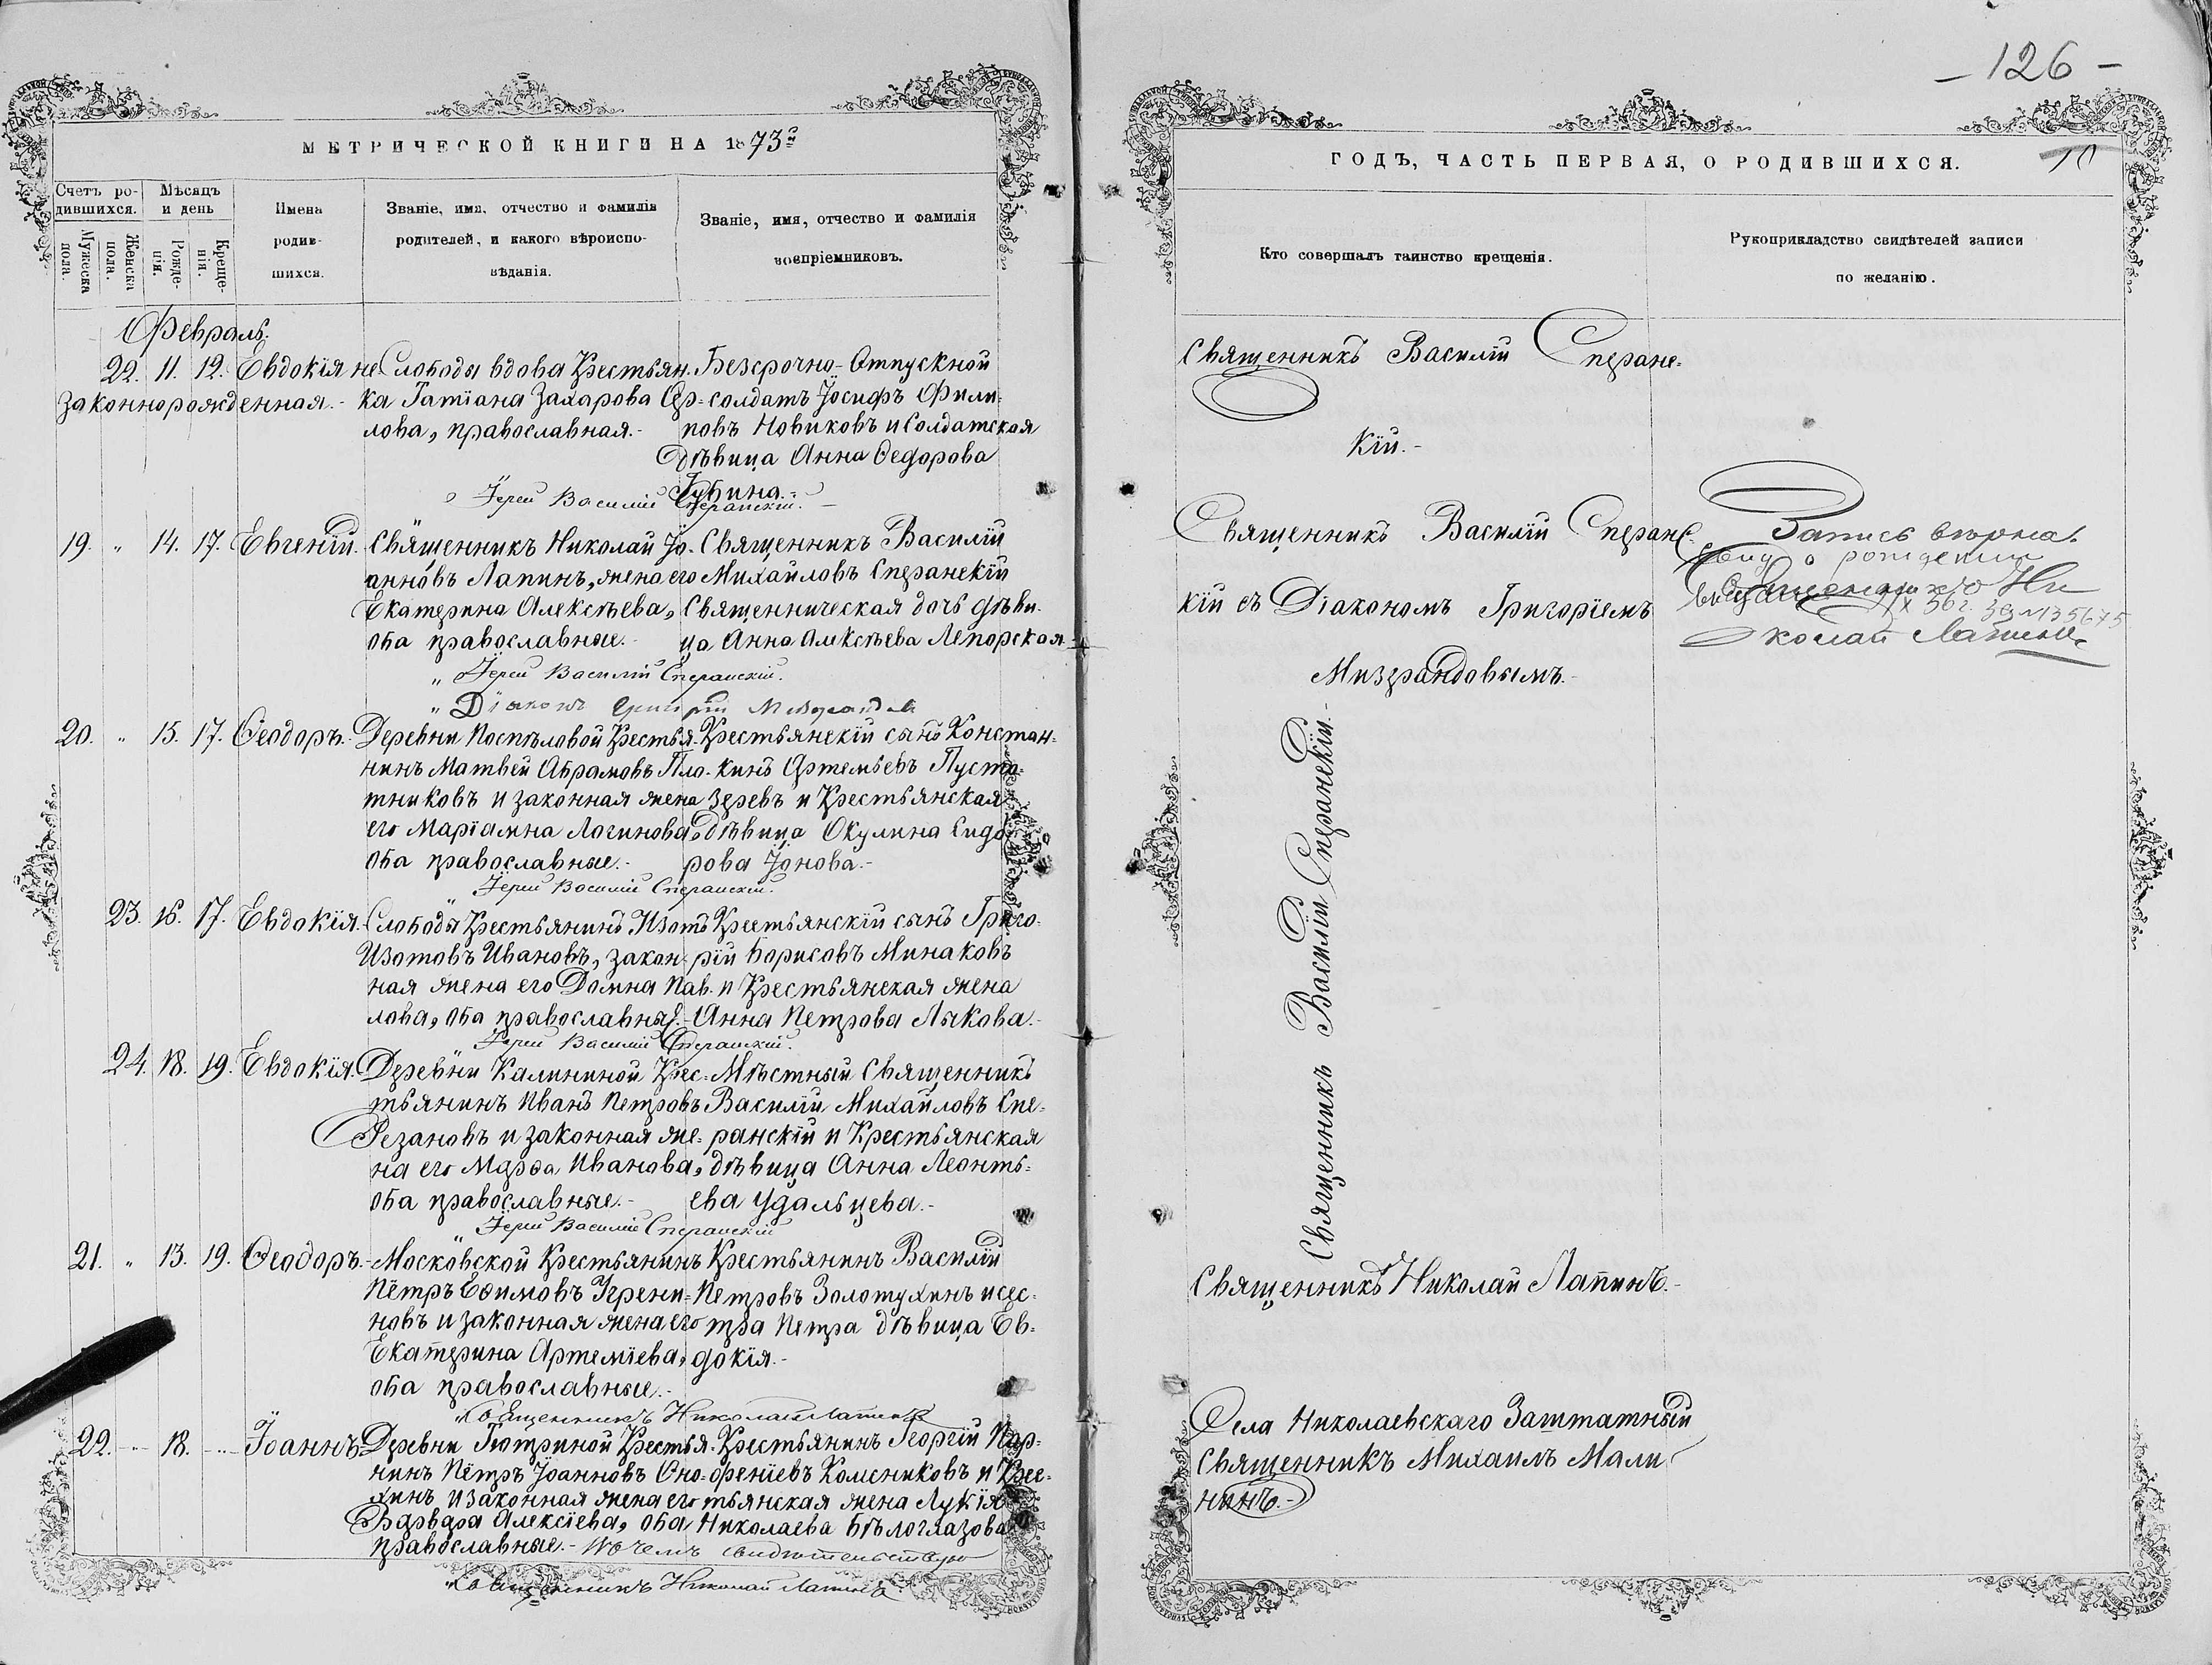 МЕТРИЧЕСКОЙ КНИГИ НА 1873й
Счетъ родившихся.
Мѣсяцъ и день
Мужеска пола.
Женска пола.
Рожденія.
Крещенія.
Имена родившихся.
Званіе, имя, отчество и фамилія
родителей, и какого вѣроиспо-
вѣданія.
Званіе, имя, отчество и фамилія
воспріемниковъ.
Февраль.
22. 11. 12. Евдокія не-
законнорожденная.-
Слободы вдова Крестьян-
ка Татіана Захарова Сер-
лова, православная.-
Безсрочно-Отпускной
солдатъ Іосифъ Фили-
повъ Новиковъ и Солдатская
Дѣвица Анна Ѳедорова
Губина.-
Іерей Василій Сперанскій.
19. " 14. 17. Евгеній.
Священникъ Николай Іо-
анновъ Лапинъ, жена его
Екатерина Алексѣева,
оба православные.-
Священникъ Василій
Михайловъ Сперанскій
Священническая дочь дѣви-
ца Анна Алексѣева Лепорская
" Іерей Василій Сперанскій.
" Діаконъ Григорій
20. " 15. 17. Ѳеодоръ.
Деревни Поспѣловой Крестья-
нинъ Матвей Абрамовъ Пло-
тниковъ и законная жена
его Маріамна Логинова,
оба православные.-
Крестьянскій сынъ Констан-
кинъ Артемьевъ Пусто-
зеревъ и Крестьянская
дѣвица Окулина Сидо-
рова Іонова.-
Іерей Василій Сперанскій.
23. 16. 17. Евдокія.
Слободы Крестьянинъ Изотъ
Изотовъ Ивановъ, закон-
ная жена его Домна Пав-
лова, оба православны.
Крестьянскій сынъ Григо-
рій Борисовъ Минаковъ
и Крестьянская жена
Анна Петрова Лыкова.-
Іерей Василій Сперанскій.
24. 18. 19. Евдокія.
Деревни Калининой Крес-
тьянинъ Иванъ Петровъ
Резановъ и законная же-
на его Марѳа Иванова,
оба православные.-
Мѣстный Священникъ
Василій Михайловъ Спе-
ранскій и Крестьянская
дѣвица Анна Леонть-
ева Удальцева.-
Іерей Василій Сперанскій
21. " 13. 19. Ѳеодоръ.-
Московской Крестьянинъ
Пётръ Еѳимовъ Угрени-
новъ и законная жена его
Екатерина Артеміева,
оба православные.-
Крестьянинъ Василій
Петровъ Золотухинъ и сес-
тра Петра дѣвица Ев-
докія.-
"Священникъ Николай Лапинъ
22. - " - 18. - " - Іоаннъ
Деревни Тютриной Крестья-
нинъ Пётръ Іоанновъ Оно-
хинъ и законная жена его
Варвара Алексіева, оба
православные.-
Крестьянинъ Георгій Пар-
феніевъ Колесниковъ и Крес-
тьянская жена Лукія
Николаева Бѣлоглазова
въ чемъ свидѣтельствую
"Священникъ Николай Лапинъ
-126-
ГОДЪ, ЧАСТЬ ПЕРВАЯ, О РОДИВШИХСЯ.
10
Кто совершалъ таинство крещенія.
Рукоприкладство свидѣтелей записи
по желанію.
Священникъ Василій Сперанс-
кій.-
Священникъ Василій Сперанс-
кій съ Діакономъ Григоріемъ
Мизерандовымъ.-
Запись вѣрна.
о рождении
Священникъ Ни
колай Лапинъ
Священникъ Василій Сперанскій.-
Священникъ Николай Лапинъ.-
Села Николаевскаго Заштатный
Священникъ Михаилъ Мали-
нинъ.-